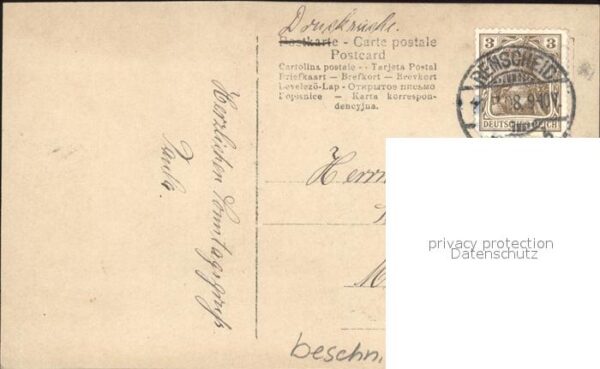 Drucksache.
Postkarte - Carte postale
Postcard
Cartolina postale - - Tarjeta Postal
Briefkaart — Brefkort — Brevkort
Levelező-Lap - Открытое письмо
Dopisnice - Karta korrespon-
dencyjna.
3 3
REMSCHEID
DEUTSCHES REICH
Herzlichen Sonntagsgruß
Herrn
privacy protection
Datenschutz
beschn.